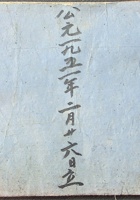 公元一九五一年二月廿六日立